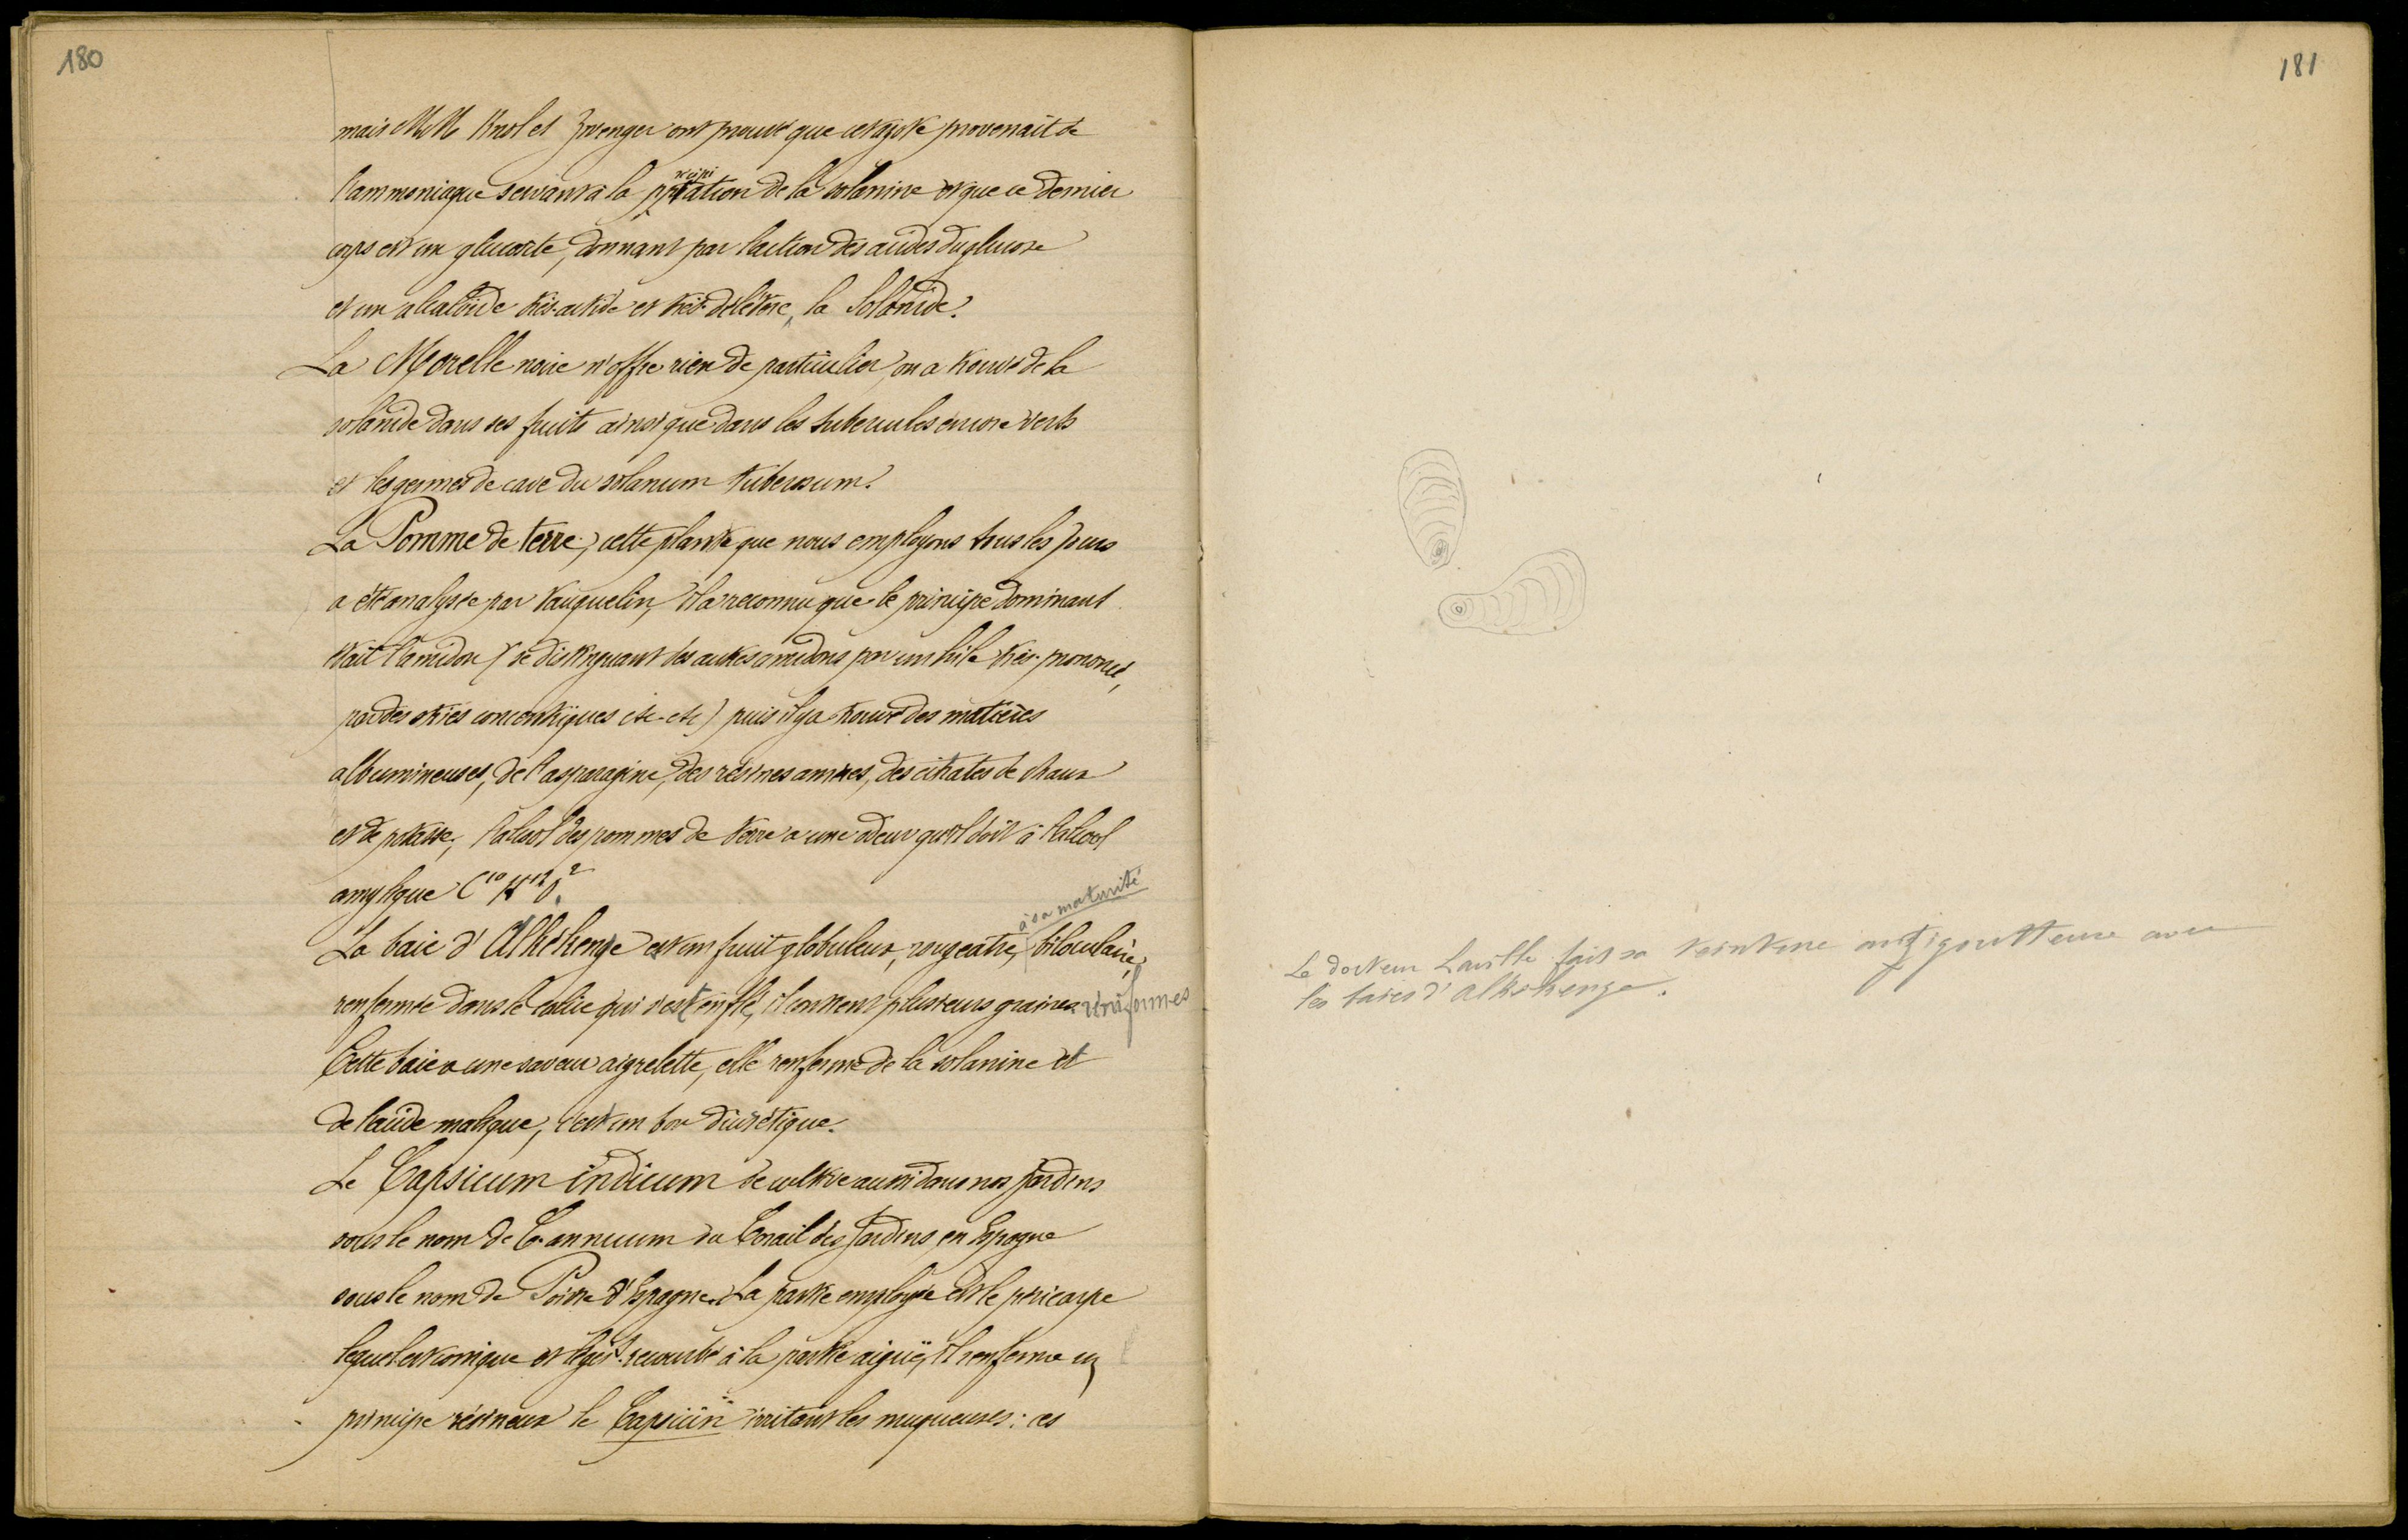 180
mais M.M. Knol et Zwenger ont prouvé que cet azote provenait de
l'ammoniaque servant à la pptation de la solanine et que ce dernier
écipi
corps est un glucoside, donnant par l'action des acides du glucose
et un alcaloïde très-actide et très-délétère, la Solanide.
La Morelle noire n'offre rien de particulier, on a trouvé de la
solanide dans ses fruits ainsi que dans les tubercules encore verts
et les germes de cave du solanum tuberosum.
La Pomme de terre, cette plante que nous employons tous les jours
a été analysée par Vauquelin, il a reconnu que le principe dominant
était l'amidon (se distinguant des autres amidons par un hile très-prononcé,
par des stries concentriques etc. etc) puis il y a trouvé des matières
albumineuses, de l'asparagine, des résines amères, des citrates de chaux
et de potasse; l'alcool des pommes de terre a une odeur qu'il doit à l'alcool
amylique C¹⁰ H¹² O².
à sa maturité
La baie d'Alkékenge est un fruit globuleux, rougeatre, biloculaire,
renfermée dans le calice qui s'est enflé, il contient plusieurs graines réniformes
Cette baie a une saveur aigrelette, elle renferme de la solanine et
de l'acide malique, c'est un bon diurétique.
Le Capsicum indicum se cultive aussi dans nos jardins
sous le nom de C. annuum ou Corail des Jardins, en Espagne
sous le nom de Poivre d'Espagne. La partie employée est le péricarpe
lequel est conique et légt recourbé à la partie aiguë, il renferme un
principe résineux le Capsicin irritant les muqueuses: ces
181
Le docteur Laville fait sa teinture antigoutteuse avec
les baies d'alkekenge.